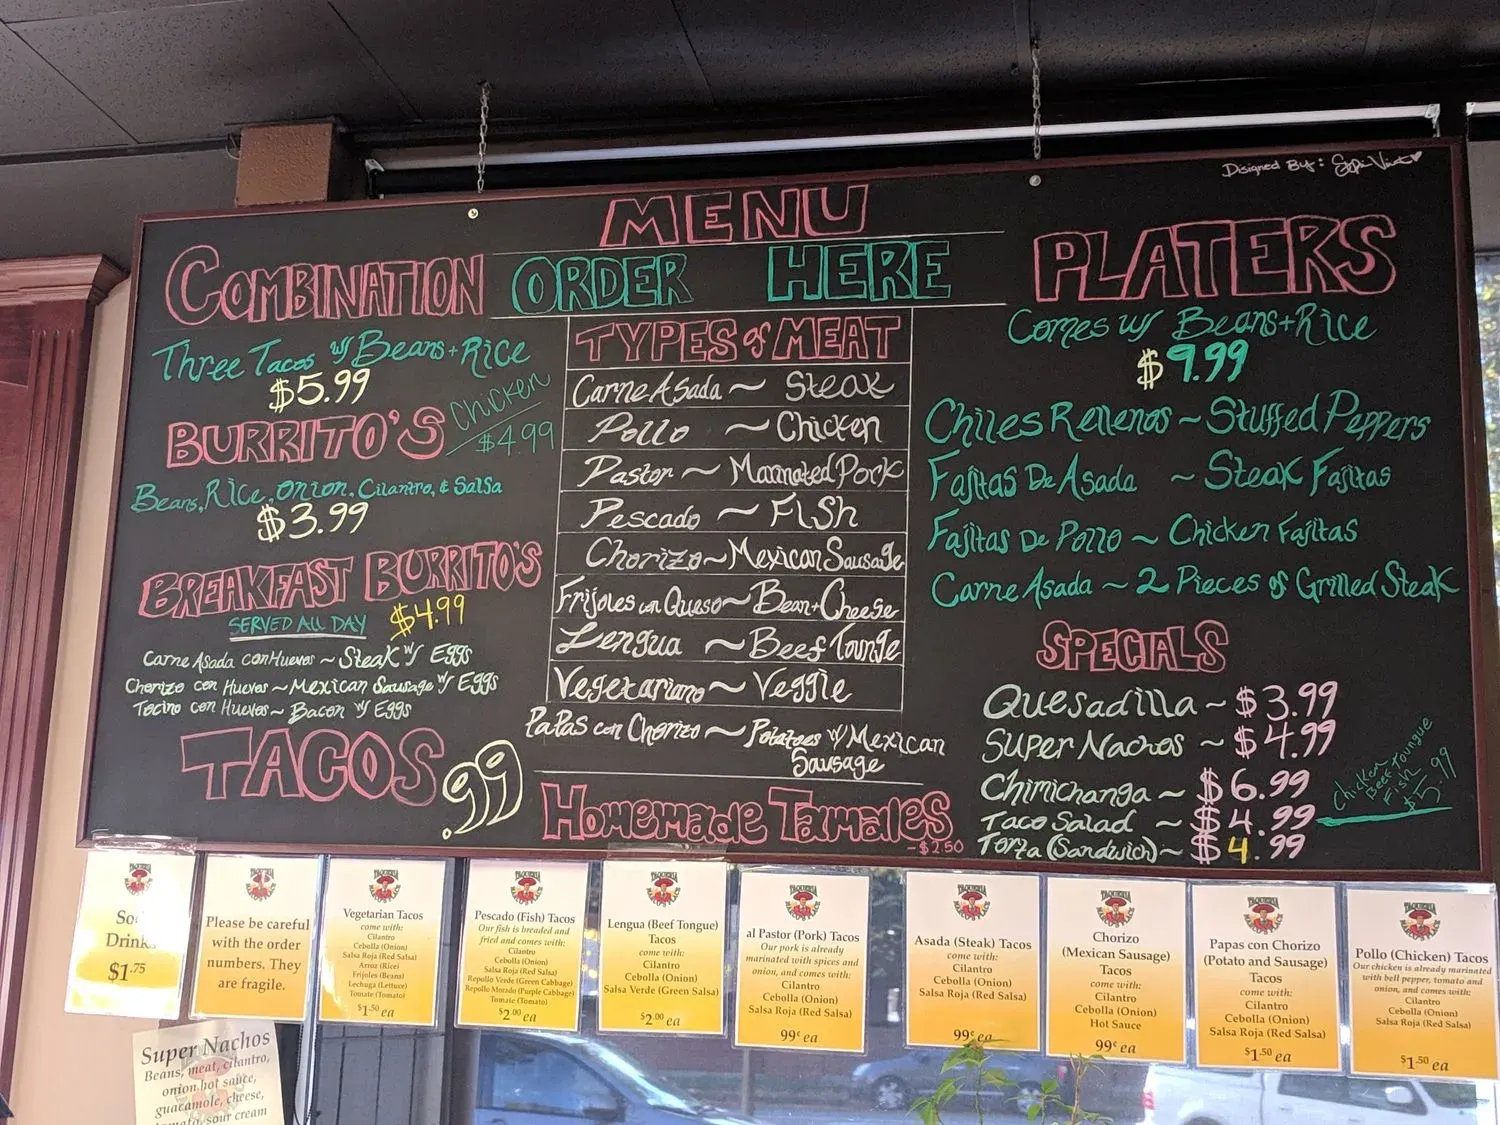 Disigned By:
MENU
ORDER HERE
COMBINATION
Three Tacos w/ Beans + Rice
$5.99
BURRITO'S
Chicken
$4.99
Beans, Rice, Onion, Cilantro, & Salsa
$3.99
BREAKFAST BURRITO'S
SERVED ALL DAY
$4.99
Carne Asada con Huevos ~ Steak w/ Eggs
Chorizo con Huevos ~ Mexican Sausage w/ Eggs
Tocino con Huevos ~ Bacon w/ Eggs
TACOS .99
TYPES of MEAT
Carne Asada ~ Steak
Pollo ~ Chicken
Pastor ~ Marinated Pork
Pescado ~ Fish
Chorizo ~ Mexican Sausage
Frijoles con Queso ~ Bean + Cheese
Lengua ~ Beef Tounge
Vegetariano ~ Veggie
Papas con Chorizo ~ Potatoes w/ Mexican
Sausage
Homemade Tamales
-$2.50
PLATERS
Comes w/ Beans + Rice
$9.99
Chiles Rellenos ~ Stuffed Peppers
Fajitas De Asada ~ Steak Fajitas
Fajitas De Pollo ~ Chicken Fajitas
Carne Asada ~ 2 Pieces of Grilled Steak
SPECIALS
Quesadilla ~ $3.99
Super Nachos ~ $4.99
Chimichanga ~ $6.99
Taco Salad ~ $4.99
Torta (Sandwich) ~ $4.99
Chicken
Beef Toungue
Fish
$5.99
Drinks
$1.75
Please be careful
with the order
numbers. They
are fragile.
TAQUERIA
Vegetarian Tacos
come with:
Cilantro
Cebolla (Onion)
Salsa Roja (Red Salsa)
Arroz (Rice)
Frijoles (Beans)
Lechuga (Lettuce)
Tomate (Tomato)
$1.50 ea
TAQUERIA
Pescado (Fish) Tacos
Our fish is breaded and
fried and comes with:
Cilantro
Cebolla (Onion)
Salsa Roja (Red Salsa)
Repollo Verde (Green Cabbage)
Repollo Morado (Purple Cabbage)
Tomate (Tomato)
$2.00 ea
TAQUERIA
Lengua (Beef Tongue)
Tacos
come with:
Cilantro
Cebolla (Onion)
Salsa Verde (Green Salsa)
$2.00 ea
TAQUERIA
al Pastor (Pork) Tacos
Our pork is already
marinated with spices and
onion, and comes with:
Cilantro
Cebolla (Onion)
Salsa Roja (Red Salsa)
99¢ ea
TAQUERIA
Asada (Steak) Tacos
come with:
Cilantro
Cebolla (Onion)
Salsa Roja (Red Salsa)
99¢ ea
TAQUERIA
Chorizo
(Mexican Sausage)
Tacos
come with:
Cilantro
Cebolla (Onion)
Hot Sauce
99¢ ea
TAQUERIA
Papas con Chorizo
(Potato and Sausage)
Tacos
come with:
Cilantro
Cebolla (Onion)
Salsa Roja (Red Salsa)
$1.50 ea
TAQUERIA
Pollo (Chicken) Tacos
Our chicken is already marinated
with bell pepper, tomato and
onion, and comes with:
Cilantro
Cebolla (Onion)
Salsa Roja (Red Salsa)
$1.50 ea
Super Nachos
Beans, meat, cilantro,
onion, hot sauce,
guacamole, cheese,
sour cream